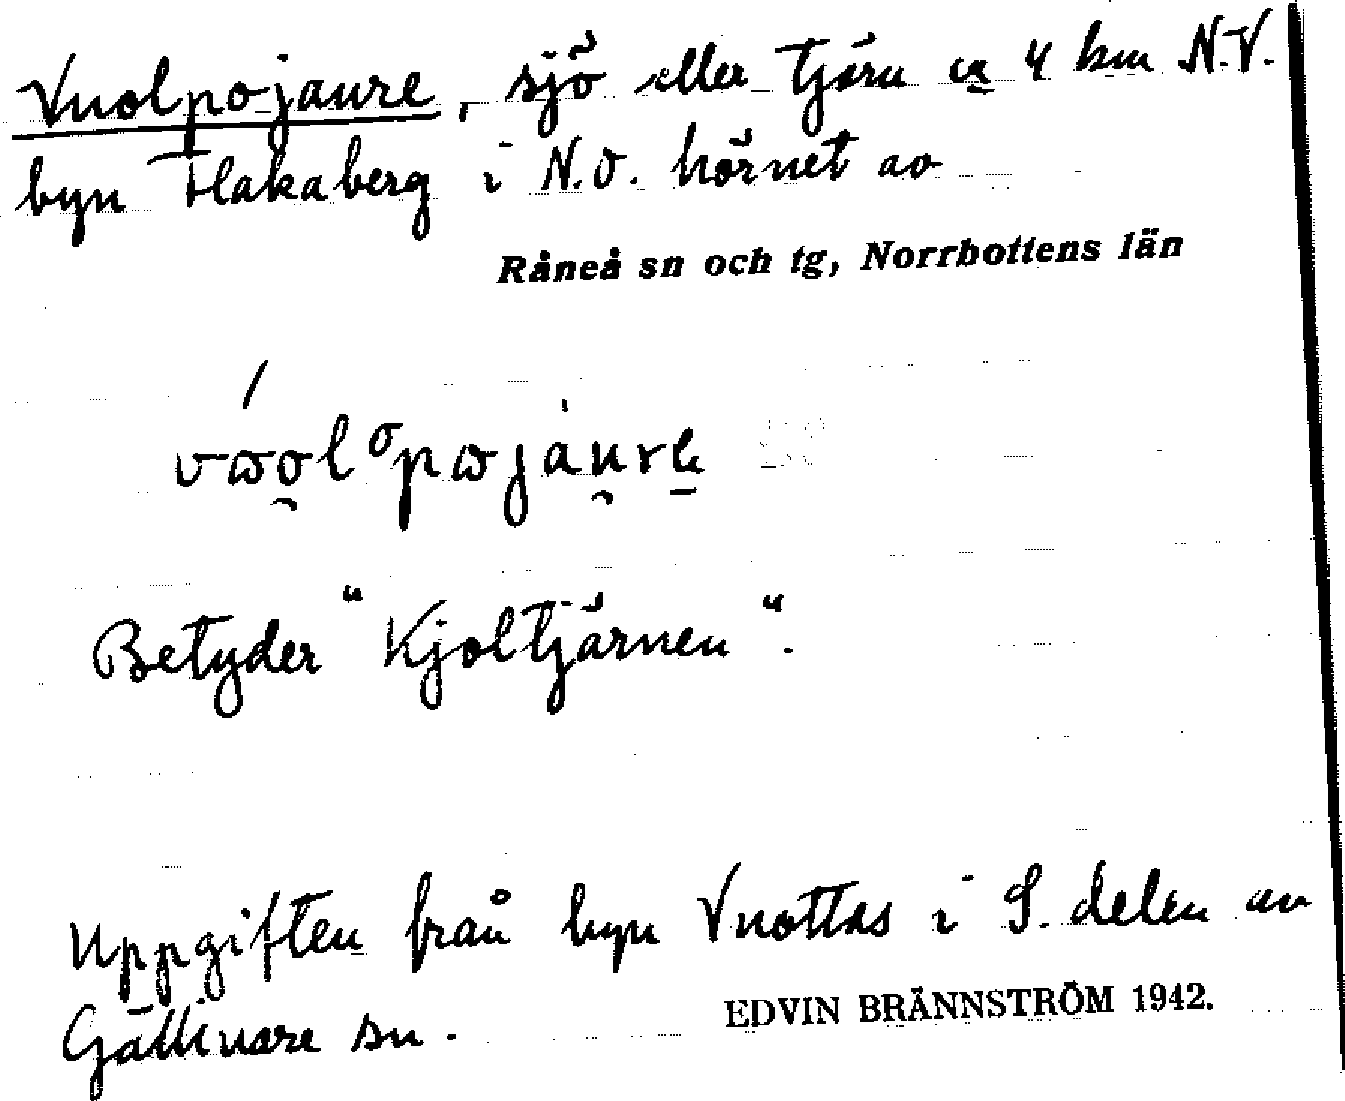 Vuolpojaure, sjö eller tjärn ca 4 km N.V.
byn Flakaberg i N.O. hörnet av
Råneå sn och tg, Norrbottens län
Betyder "Kjoltjärnen".
Uppgiften från byn Vuottas i S. delen av
Gällivare sn.
EDVIN BRÄNNSTRÖM 1942.